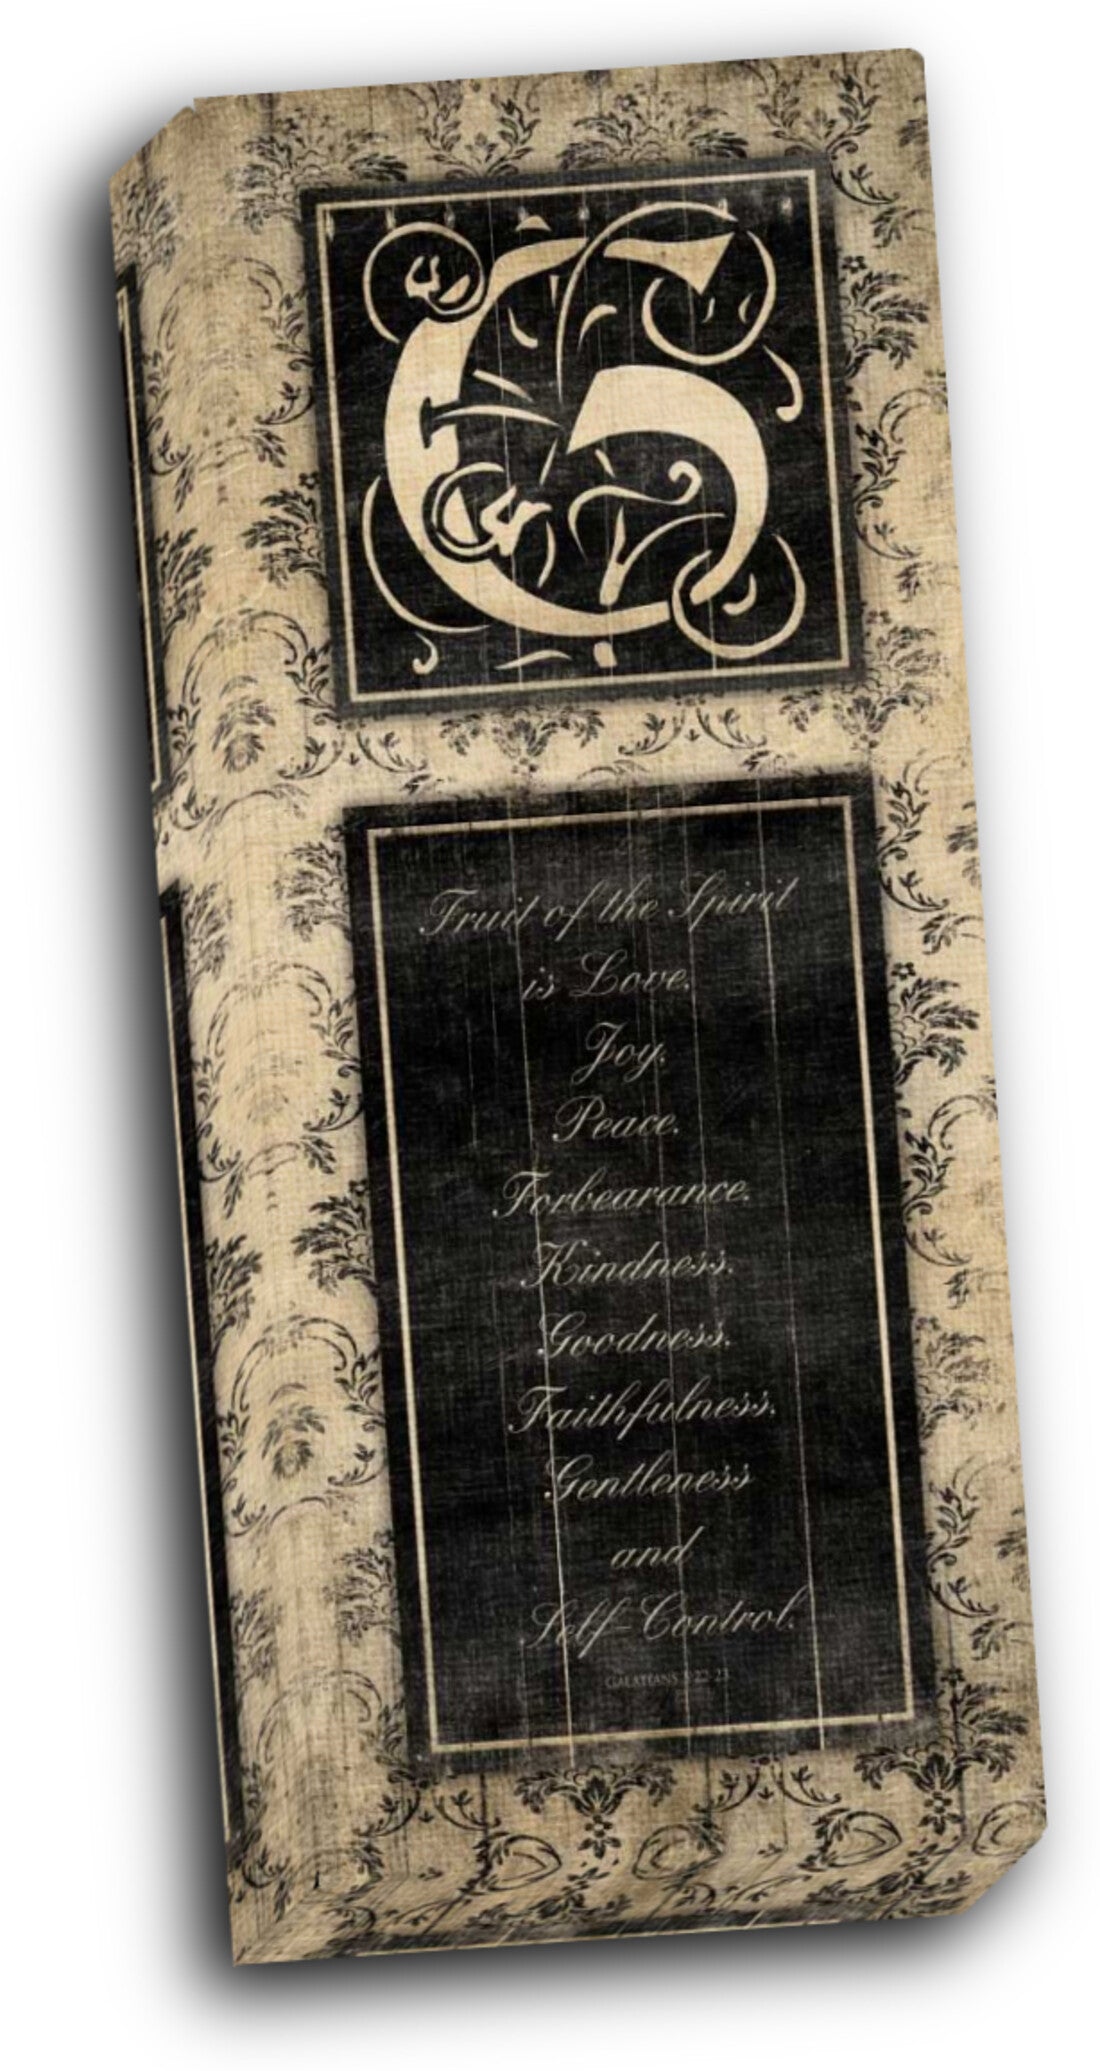 G
Fruit of the Spirit
is Love,
Joy,
Peace,
Forbearance,
Kindness,
Goodness,
Faithfulness,
Gentleness
and
Self-Control.
GALATIANS 5:22-23